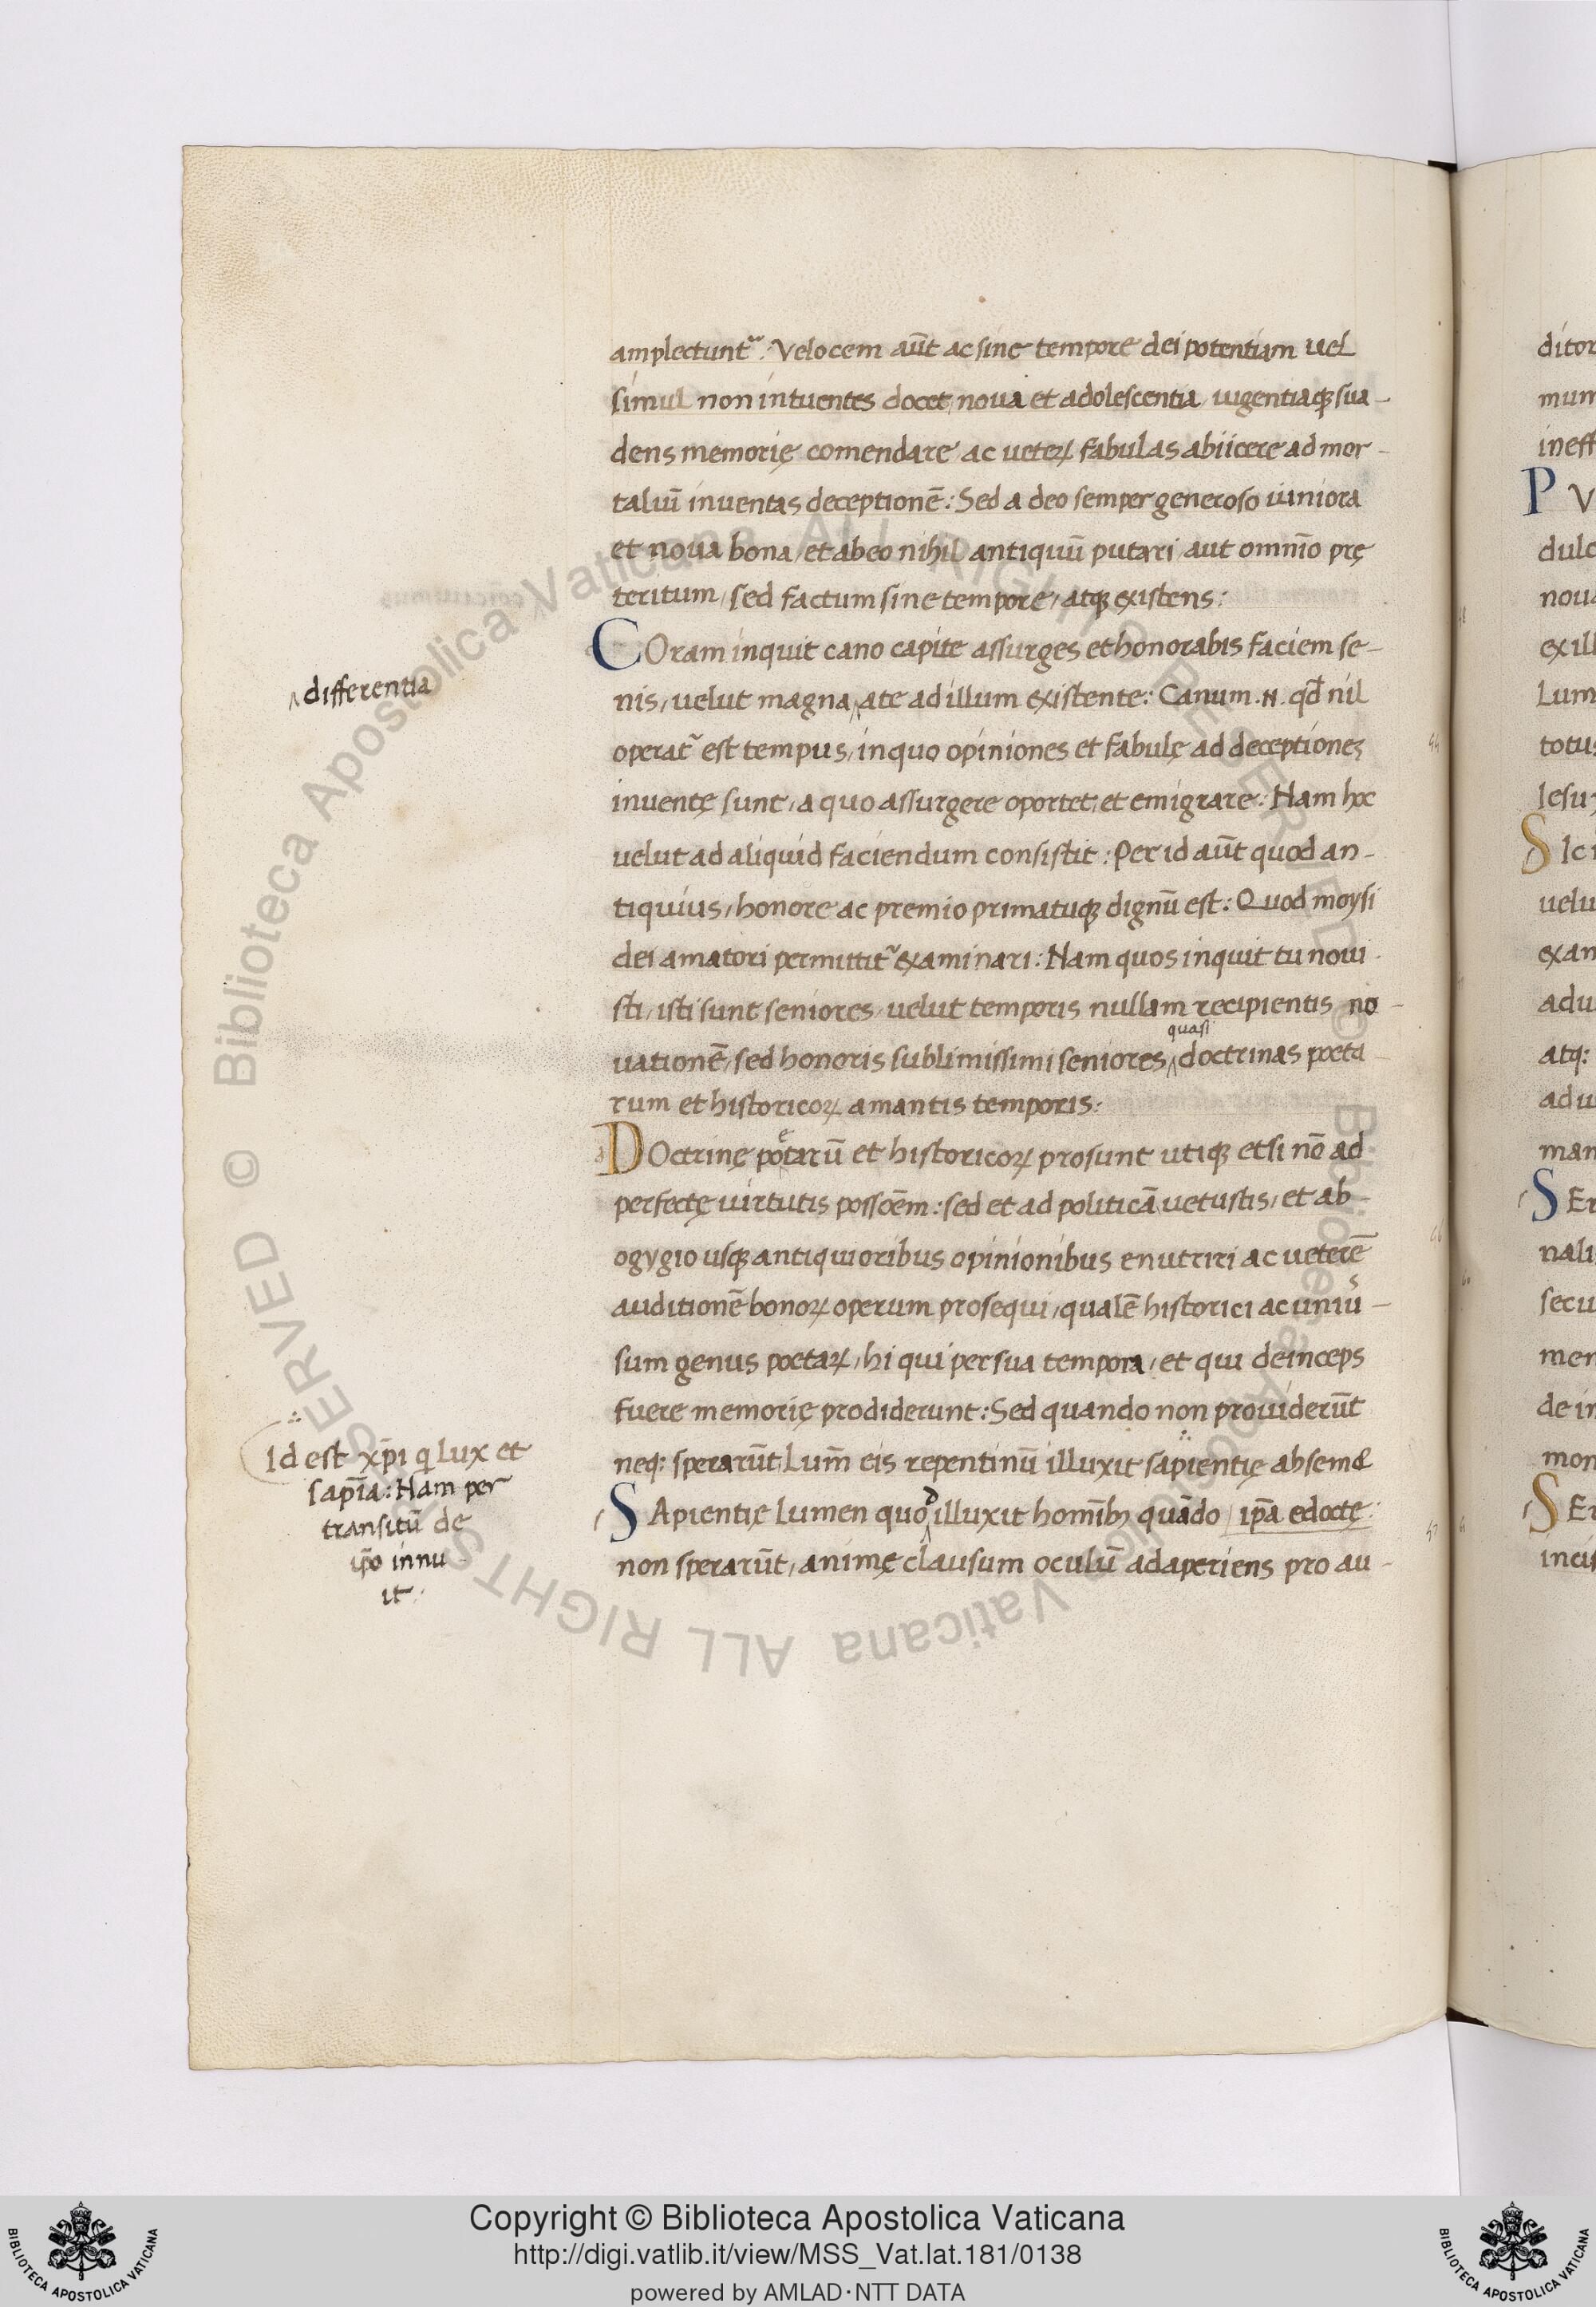 amplectunt᷑. Velocem aūt ac sine tempore dei potentiam uel
simul non intuentes docet, noua et adolescentia, uigentiaqꝫ sua-
dens memorię comendare ac ueteꝝ fabulas abiicere ad mor-
taliū inuentas deceptionē: Sed a deo semper generoso iuniora
et noua bona, et ab eo nihil antiquū putari, aut omnīo prę
teritum, sed factum sine tempore, atqꝫ existens:
COram inquit cano capite assurges et honorabis faciem se-
^differentia
nis, uelut magna^ate ad illum existente: Canum .N. qđ nil
operat᷑ est tempus, in quo opiniones et fabulę ad deceptiones
inuentę sunt, a quo assurgere oportet, et emigrare: Nam hoc
uelut ad aliquid faciendum consistit: Per id aūt quod an-
tiquius, honore ac premio primatuqꝫ dignū est: Quod moysi
dei amatori permittit᷑ examinari: Nam quos inquit tu noui
sti, isti sunt seniores, uelut temporis nullam recipientis no-
quasi
uationē, sed honoris sublimissimi seniores^doctrinas poeta
rum et historicoꝝ amantis temporis:
DOctrinę poetarū et historicoꝝ prosunt utiqꝫ etsi nō ad
perfectę uirtutis possōem: sed et ad politicā uetustis, et ab
ogygio usqꝫ antiquioribus opinionibus enutriri ac ueterē
auditionē bonoꝝ operum prosequi, qualē historici ac uniū-
sum genus poetaꝝ, hi qui per sua tempora, et qui deinceps
fuere memorię prodiderunt: Sed quando non prouiderūt
neq: sperarūt, Lum̄ eis repentinū illuxit sapientię absemet
SApientię Lumen quod^illuxit homībꝫ quādo ip̄a edoctę
non sperarūt, animę clausum oculū adaperiens pro au-
Id est xp̄i q Lux et
sapīa: Nam per
transitū de
ip̄o innu
it:
ditor
mum
ineff
P V
dulc
noua
ex ill
Lum
totus
Iesu
SIc
uelu
exan
adu
atq:
adu
man
SEr
nali
secu
mer
de in
mon
SEr
incis
© Biblioteca Apostolica Vaticana ALL RIGHTS RESERVED © Biblioteca Apostolica Vaticana ALL RIGHTS RESERVED
Copyright © Biblioteca Apostolica Vaticana
http://digi.vatlib.it/view/MSS_Vat.lat.181/0138
powered by AMLAD·NTT DATA
BIBLIOTECA APOSTOLICA VATICANA
BIBLIOTECA APOSTOLICA VATICANA